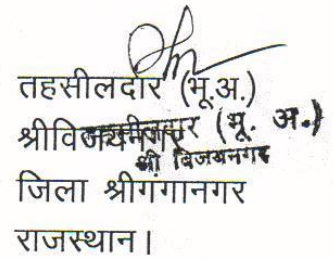 तहसीलदार (भू.अ.)
श्रीविजयनगर
तहसीलदार (भू. अ.)
श्री विजयनगर
जिला श्रीगंगानगर
राजस्थान।